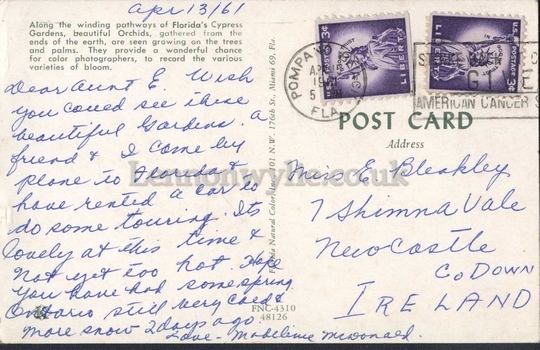 Apr 13/61
Along the winding pathways of Florida's Cypress
Gardens, beautiful Orchids, gathered from the
ends of the earth, are seen growing on the trees
and palms. They provide a wonderful chance
for color photographers, to record the various
varieties of bloom.
Dear Aunt E. Wish
you could see these
beautiful Gardens. a
friend & I come by
plane to Florida &
have rented a car to
do some touring. Its
lovely at this time &
not yet too hot. Hope
you have had some spring
Ontario still very cold &
more snow 2 days ago.
Love - Madeline McDonald.
FNC-4310
48126
Florida Natural Color 101 N.W. 176th St., Miami 69, Fla.
U.S. POSTAGE
3¢
LIBERTY
U.S. POSTAGE
3¢
LIBERTY
POMPANO
FLA
AMERICAN CANCER S
POST CARD
Address
Miss E Bleakley
7 Shimna Vale
Newcastle
Co Down
IRELAND